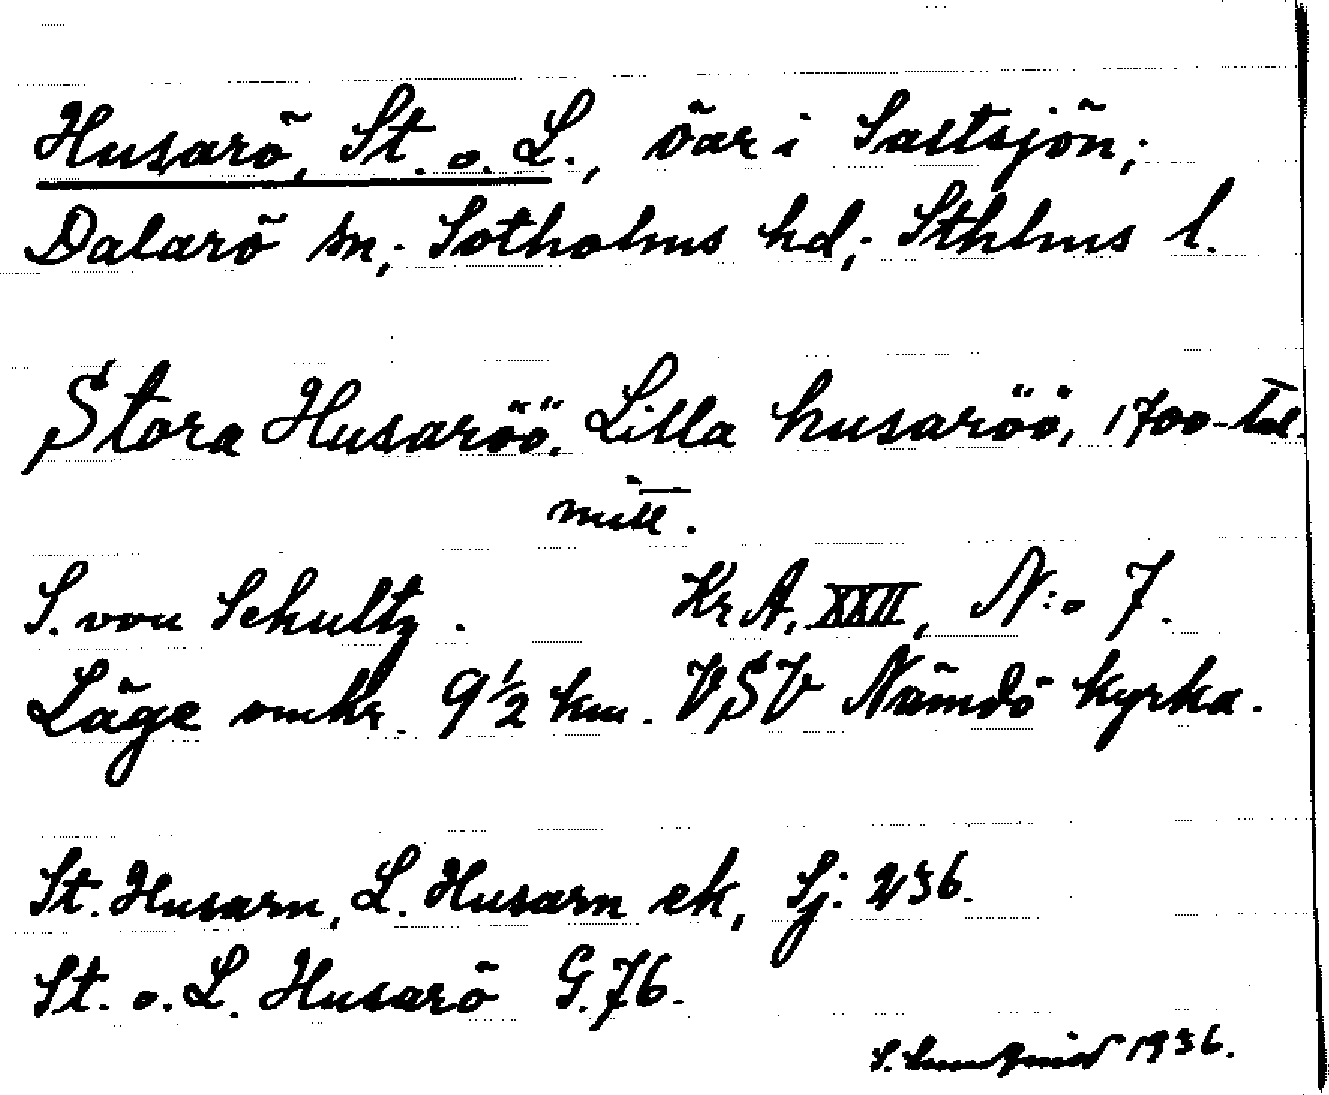 Husarö, St. o. L., öar i Saltsjön;
Dalarö sn; Sotholms hd; Sthlms l.
Stora Husaröö. Lilla husaröö, 1700-tal.
mitt.
S. von Schultz. Kr A. XXII, N:o 7.
Läge omkr. 9 1/2 km. VSV Nämdö kyrka.
St. Husarn, L. Husarn ek, Sj: 236.
St. o. L. Husarö G. 76.
S. 1936.